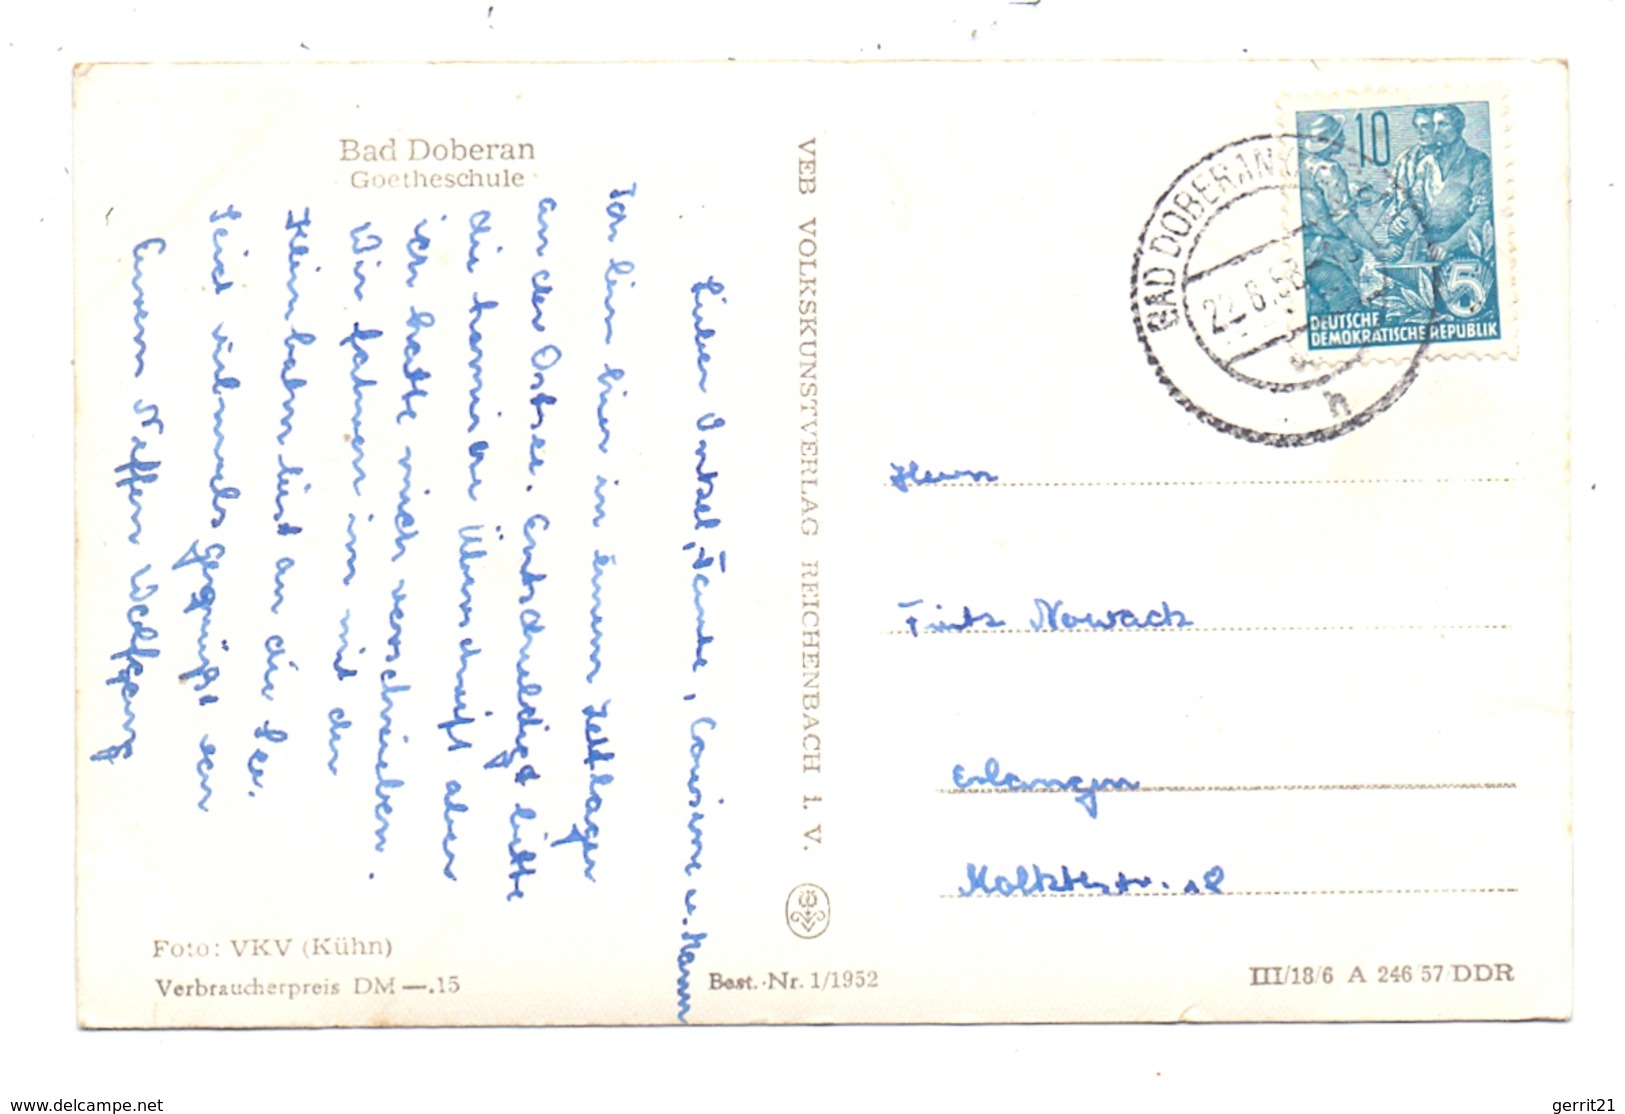 Bad Doberan
Goetheschule
Lieber Onkel, Tante, Cousine u. Mann
Ich bin hier in einem Zeltlager
an der Ostsee. Entschuldigt bitte
die Überschrift aber
ich hatte mich verschrieben.
Wir fahren im mit der
Kleinbahn bis an die See.
Seid vielmals gegrüßt von
Eurem Neffen Wolfgang
Foto: VKV (Kühn)
Verbraucherpreis DM —.15
VEB VOLKSKUNSTVERLAG REICHENBACH I. V.
Best.-Nr. 1/1952
10
5
DEUTSCHE
DEMOKRATISCHE REPUBLIK
BAD DOBERAN
22.8.58
h
Herrn
Fritz Nowack
Erlangen
Moltkestr. 12
III/18/6 A 246/57/DDR
www.delcampe.net
gerrit21